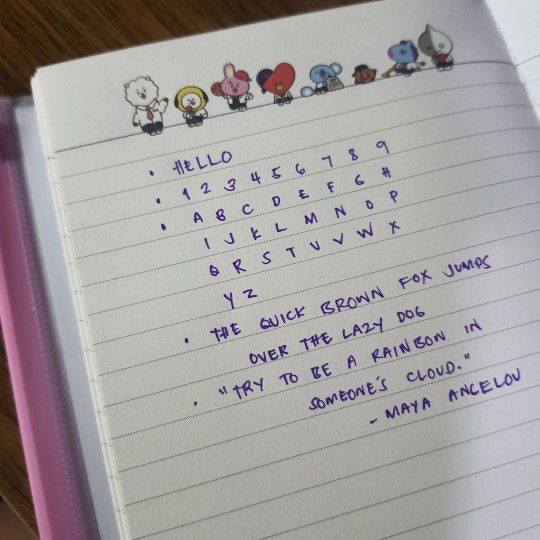 • HELLO
• 1 2 3 4 5 6 7 8 9
• A B C D E F G H
I J K L M N O P
Q R S T U V W X
Y Z
• THE QUICK BROWN FOX JUMPS
OVER THE LAZY DOG
• "TRY TO BE A RAINBOW IN
SOMEONE'S CLOUD."
- MAYA ANGELOU